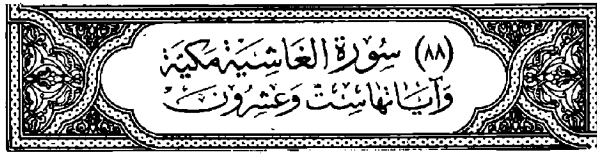 (٨٨) سُورَة الغَاشِيَة مَكيَّة
وَآيَاتهَا سِت وَعشرُونَ